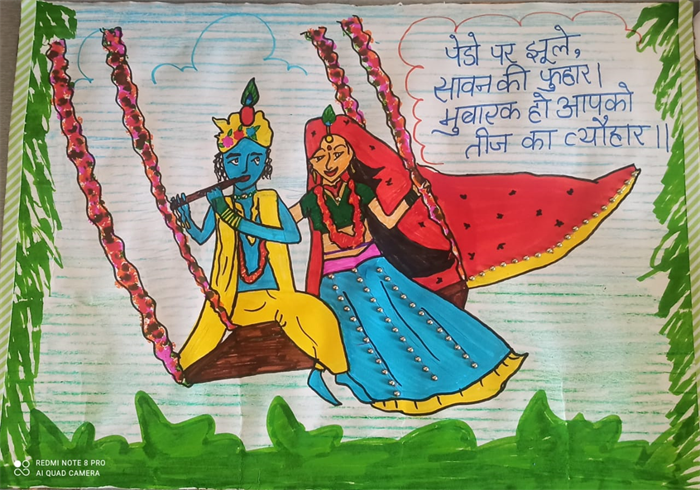 पेडो पर झूले,
सावन की फुहार।
मुबारक हो आपको
तीज का त्यौहार॥
REDMI NOTE 8 PRO
AI QUAD CAMERA